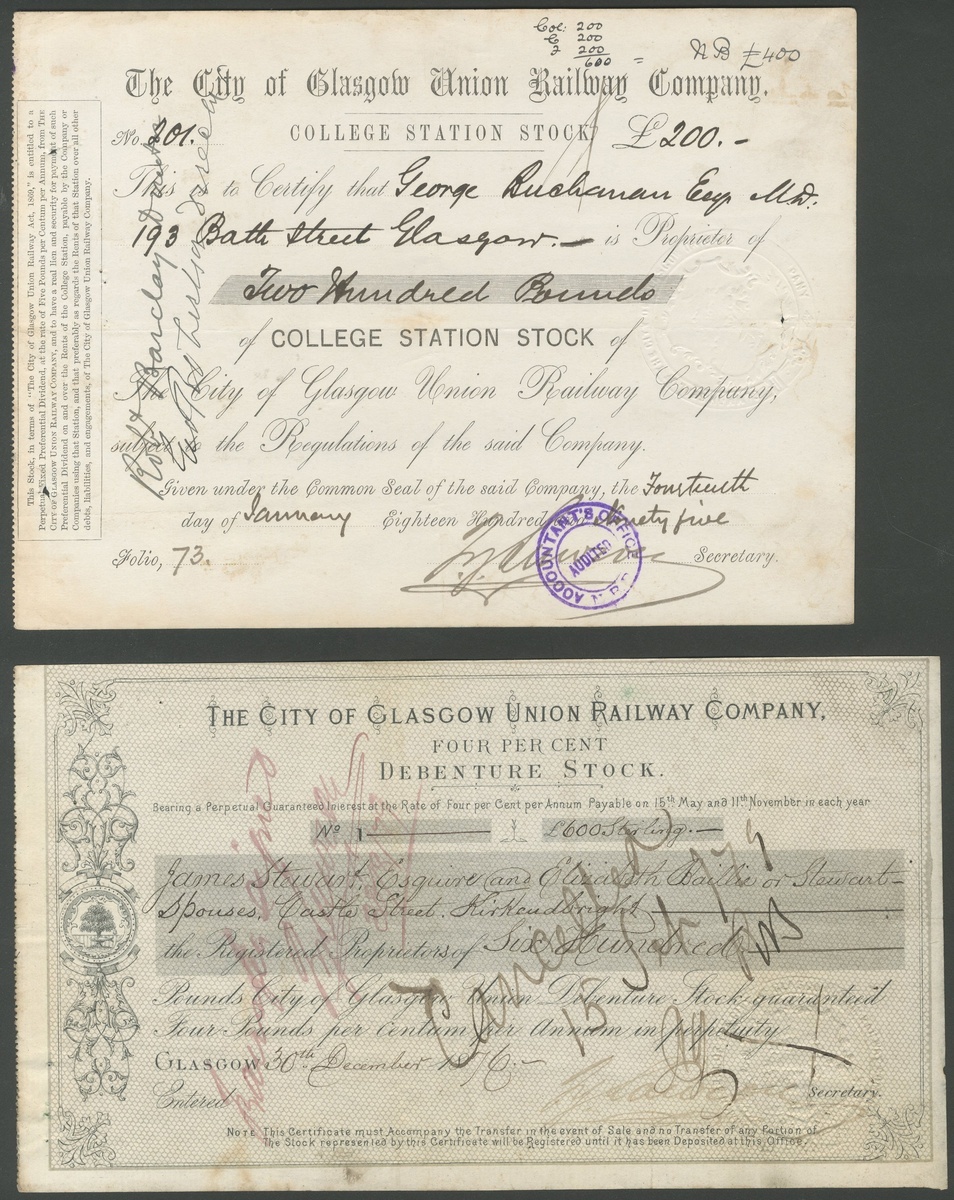 Col: 200
C 200
2 200
600 =
N B £400
The City of Glasgow Union Railway Company.
No. 201.
COLLEGE STATION STOCK,
£200.-
This is to Certify that George Buchanan Esqr. M.D.
193 Bath Street Glasgow.— is Proprietor of
Two Hundred Pounds
of COLLEGE STATION STOCK of
The City of Glasgow Union Railway Company,
subject to the Regulations of the said Company.
Given under the Common Seal of the said Company, the Fourteenth
day of January Eighteen Hundred and Ninety five
Folio, 73.
Secretary.
ACCOUNTANT'S OFFICE
AUDITED
N.B.R
This Stock, in terms of "The City of Glasgow Union Railway Act, 1869," is entitled to a
Perpetual Fixed Preferential Dividend, at the rate of Five Pounds per Centum per Annum, from THE
CITY OF GLASGOW UNION RAILWAY COMPANY, and to have a real lien and security for payment of such
Preferential Dividend on and over the Rents of the College Station, payable by the Company or
Companies using that Station, and that preferably as regards the Rents of that Station over all other
debts, liabilities, and engagements, of The City of Glasgow Union Railway Company.
Robt Barclay
THE CITY OF GLASGOW UNION RAILWAY COMPANY,
FOUR PER CENT
DEBENTURE STOCK.
Bearing a Perpetual Guaranteed Interest at the Rate of Four per Cent per Annum Payable on 15th May and 11th November in each year
No 1
£600 Sterling.—
James Stewart, Esquire, and Elizabeth Baillie or Stewart—
Spouses, Castle Street, Kirkcudbright
the Registered Proprietors of Six Hundred
Pounds City of Glasgow Union Debenture Stock, guaranteed
Four Pounds per Centum per Annum in perpetuity
GLASGOW 30th December 1876.—
Entered
Secretary.
Cancelled
NOTE This Certificate must Accompany the Transfer in the event of Sale and no Transfer of any Portion of
The Stock represented by this Certificate will be Registered until it has been Deposited at this Office.